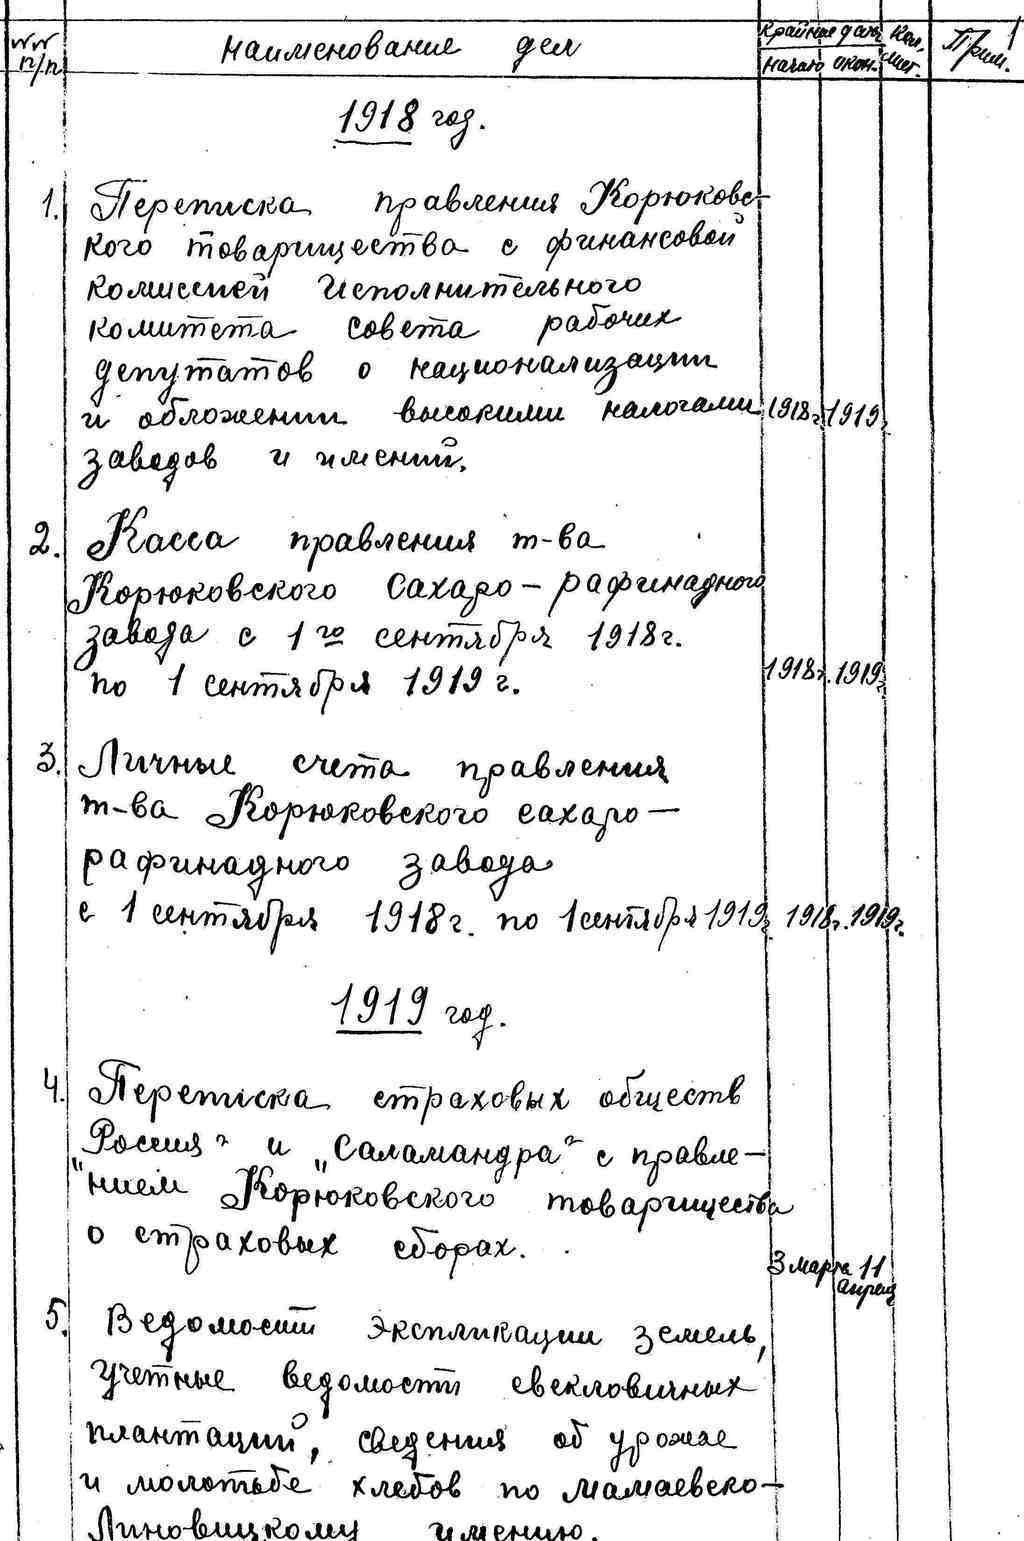 №№ п/п. Наименование дел Крайние даты Кол. Прим. 1
начало окон.
1918 год.
1. Переписка правления Корюковс-
кого товарищества с финансовой
комиссией Исполнительного
комитета совета рабочих
депутатов о национализации
и обложении высокими налогами 1918г. 1919г.
заводов и имений.
2. Касса правления т-ва
Корюковского Сахаро-рафинадного
завода с 1го сентября 1918г.
по 1 сентября 1919 г. 1918г. 1919г.
3. Личные счета правления
т-ва Корюковского сахаро-
рафинадного завода
с 1 сентября 1918г. по 1 сентября 1919г. 1918г. 1919г.
1919 год.
4. Переписка страховых обществ
„Россия" и „Саламандра" с правле-
нием Корюковского товарищества
о страховых сборах.
3 марта 11 апреля
5. Ведомости экспликации земель,
учетные ведомости свекловичных
плантаций, сведения об урожае
и молотьбе хлебов по Мамаевско-
Линовицкому имению.